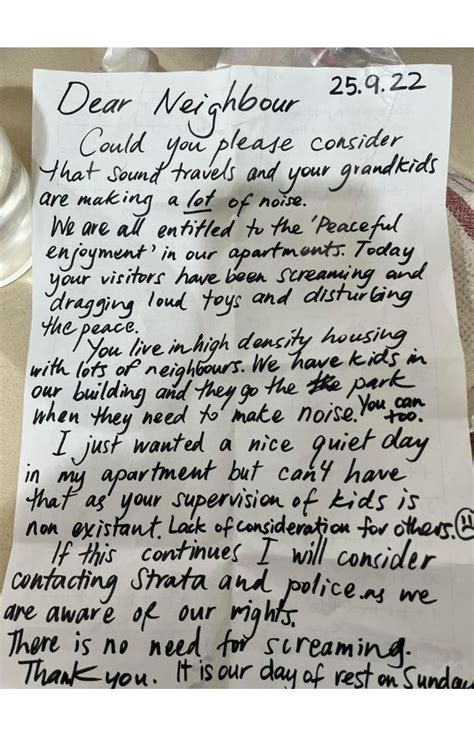 25.9.22
Dear Neighbour
Could you please consider
that sound travels and your grandkids
are making a lot of noise.
We are all entitled to the 'Peaceful
enjoyment' in our apartments. Today
your visitors have been screaming and
dragging loud toys and disturbing
the peace.
You live in high density housing
with lots of neighbours. We have kids in
our building and they go the park
when they need to make noise. You can
too.
I just wanted a nice quiet day
in my apartment but can't have
that as your supervision of kids is
non existant. Lack of consideration for others.
If this continues I will consider
contacting Strata and police. as we
are aware of our rights.
There is no need for screaming.
Thank you. It is our day of rest on Sunday